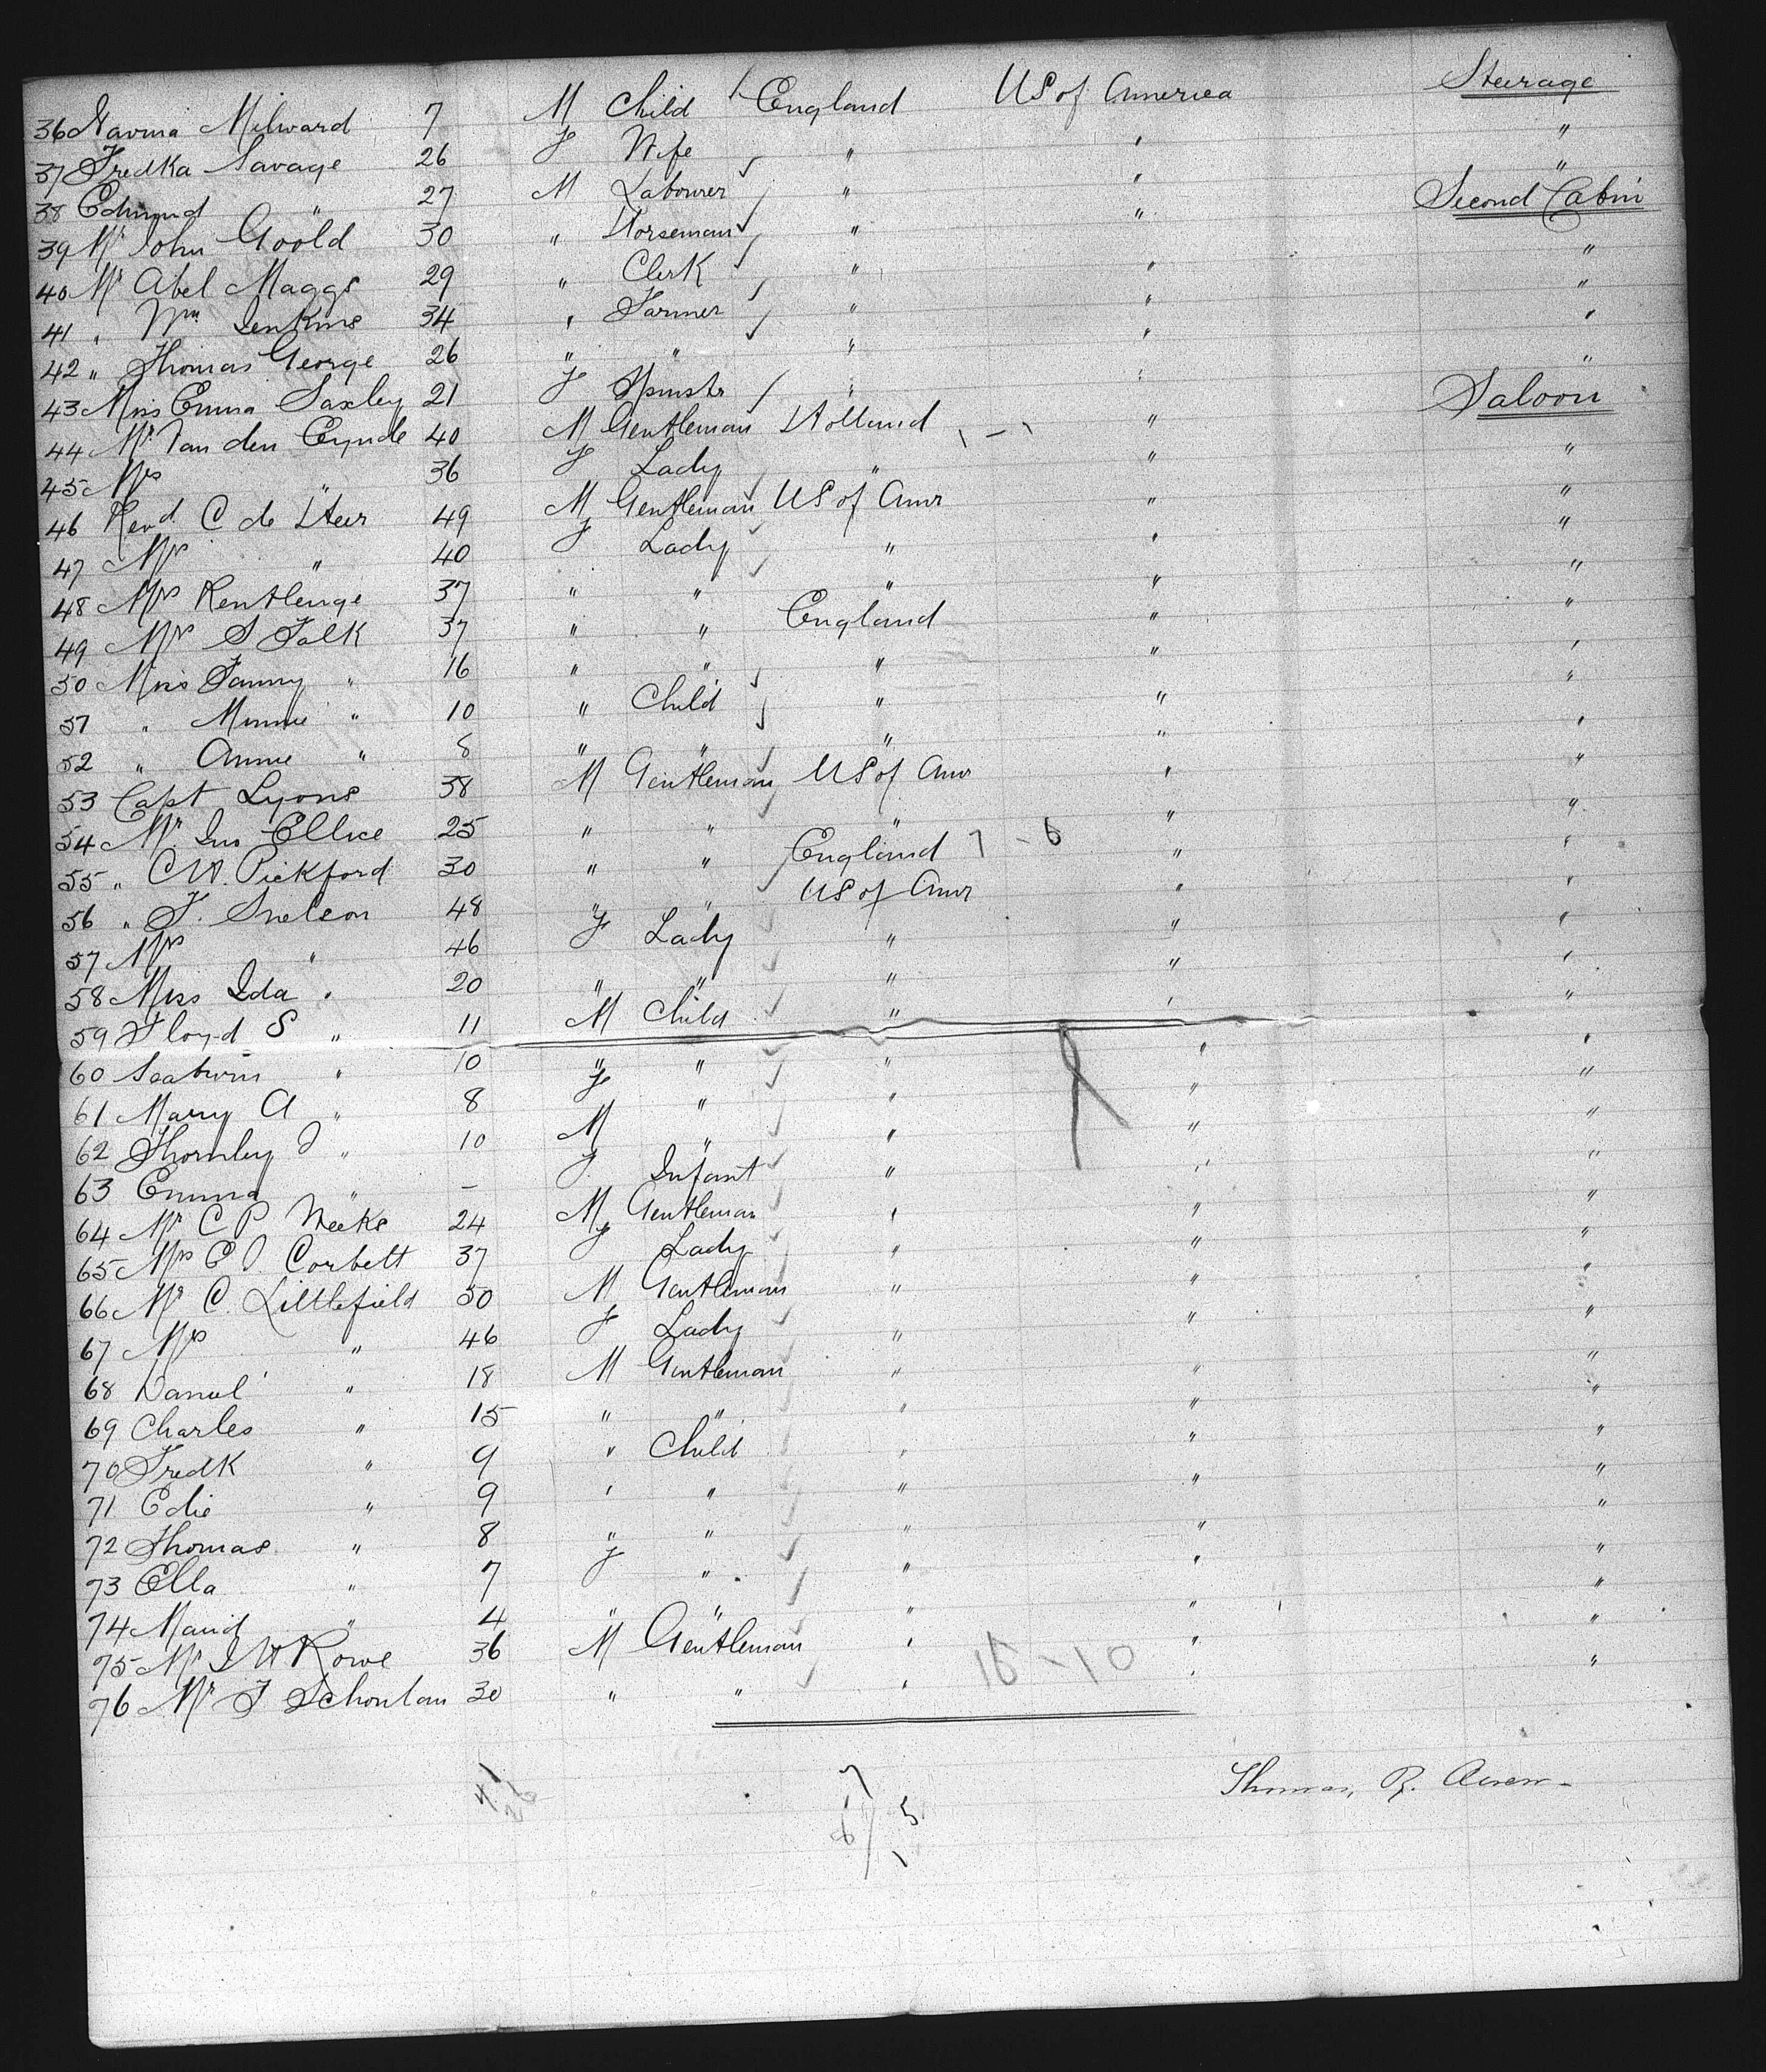 36 Milward 7 M Child England US of America Steerage
37 Fredka Savage 26 F Wife " " "
38 Edmund " 27 M Labourer " " "
39 Mr John Goold 30 " Horseman " " Second Cabin
40 Mr Abel Maggs 29 " Clerk " " "
41 " Wm Jenkins 34 " Farmer " " "
42 " Thomas George 26 " " " " "
43 Miss Emma Saxley 21 F Spinstr " " "
44 Mr Van den Eynde 40 M Gentleman Holland " Saloon
45 Mrs " 36 F Lady " " "
46 Revd. C de Heer 49 M Gentleman US of Amr " "
47 Mrs " 40 F Lady " " "
48 Mrs 37 " " " " "
49 Mrs S Falk 37 " " England " "
50 Miss Fanny " 16 " " " " "
51 " Minnie " 10 " Child " " "
52 " Annie " 8 " " " " "
53 Capt Lyons 38 M Gentleman US of Amr " "
54 Mr. Jno Ellice 25 " " " " "
55 " C W. Pickford 30 " " England 7 - 6 " "
56 " F. Snelson 48 " " US of Amr " "
57 Mrs " 46 F Lady " " "
58 Miss Ida " 20 " " " " "
59 Floyd S " 11 M Child " " "
60 " 10 " " " " "
61 Mary A " 8 F " " " "
62 Thornley J " 10 M " " " "
63 Emma " - F Infant " " "
64 Mr C P Weeks 24 M Gentleman " " "
65 Mrs E J Corbett 37 F Lady " " "
66 Mr C. Littlefield 50 M Gentleman " " "
67 Mrs " 46 F Lady " " "
68 Daniel " 18 M Gentleman " " "
69 Charles " 15 " " " " "
70 Fredk " 9 " Child " " "
71 Edie " 9 " " " " "
72 Thomas " 8 " " " " "
73 Ella " 7 F " " " "
74 Maud " 4 " " " " "
75 Mr J W Rowe 36 M Gentleman " " "
76 Mr F Schoulan 30 " " " 16 - 10 " "
Thomas